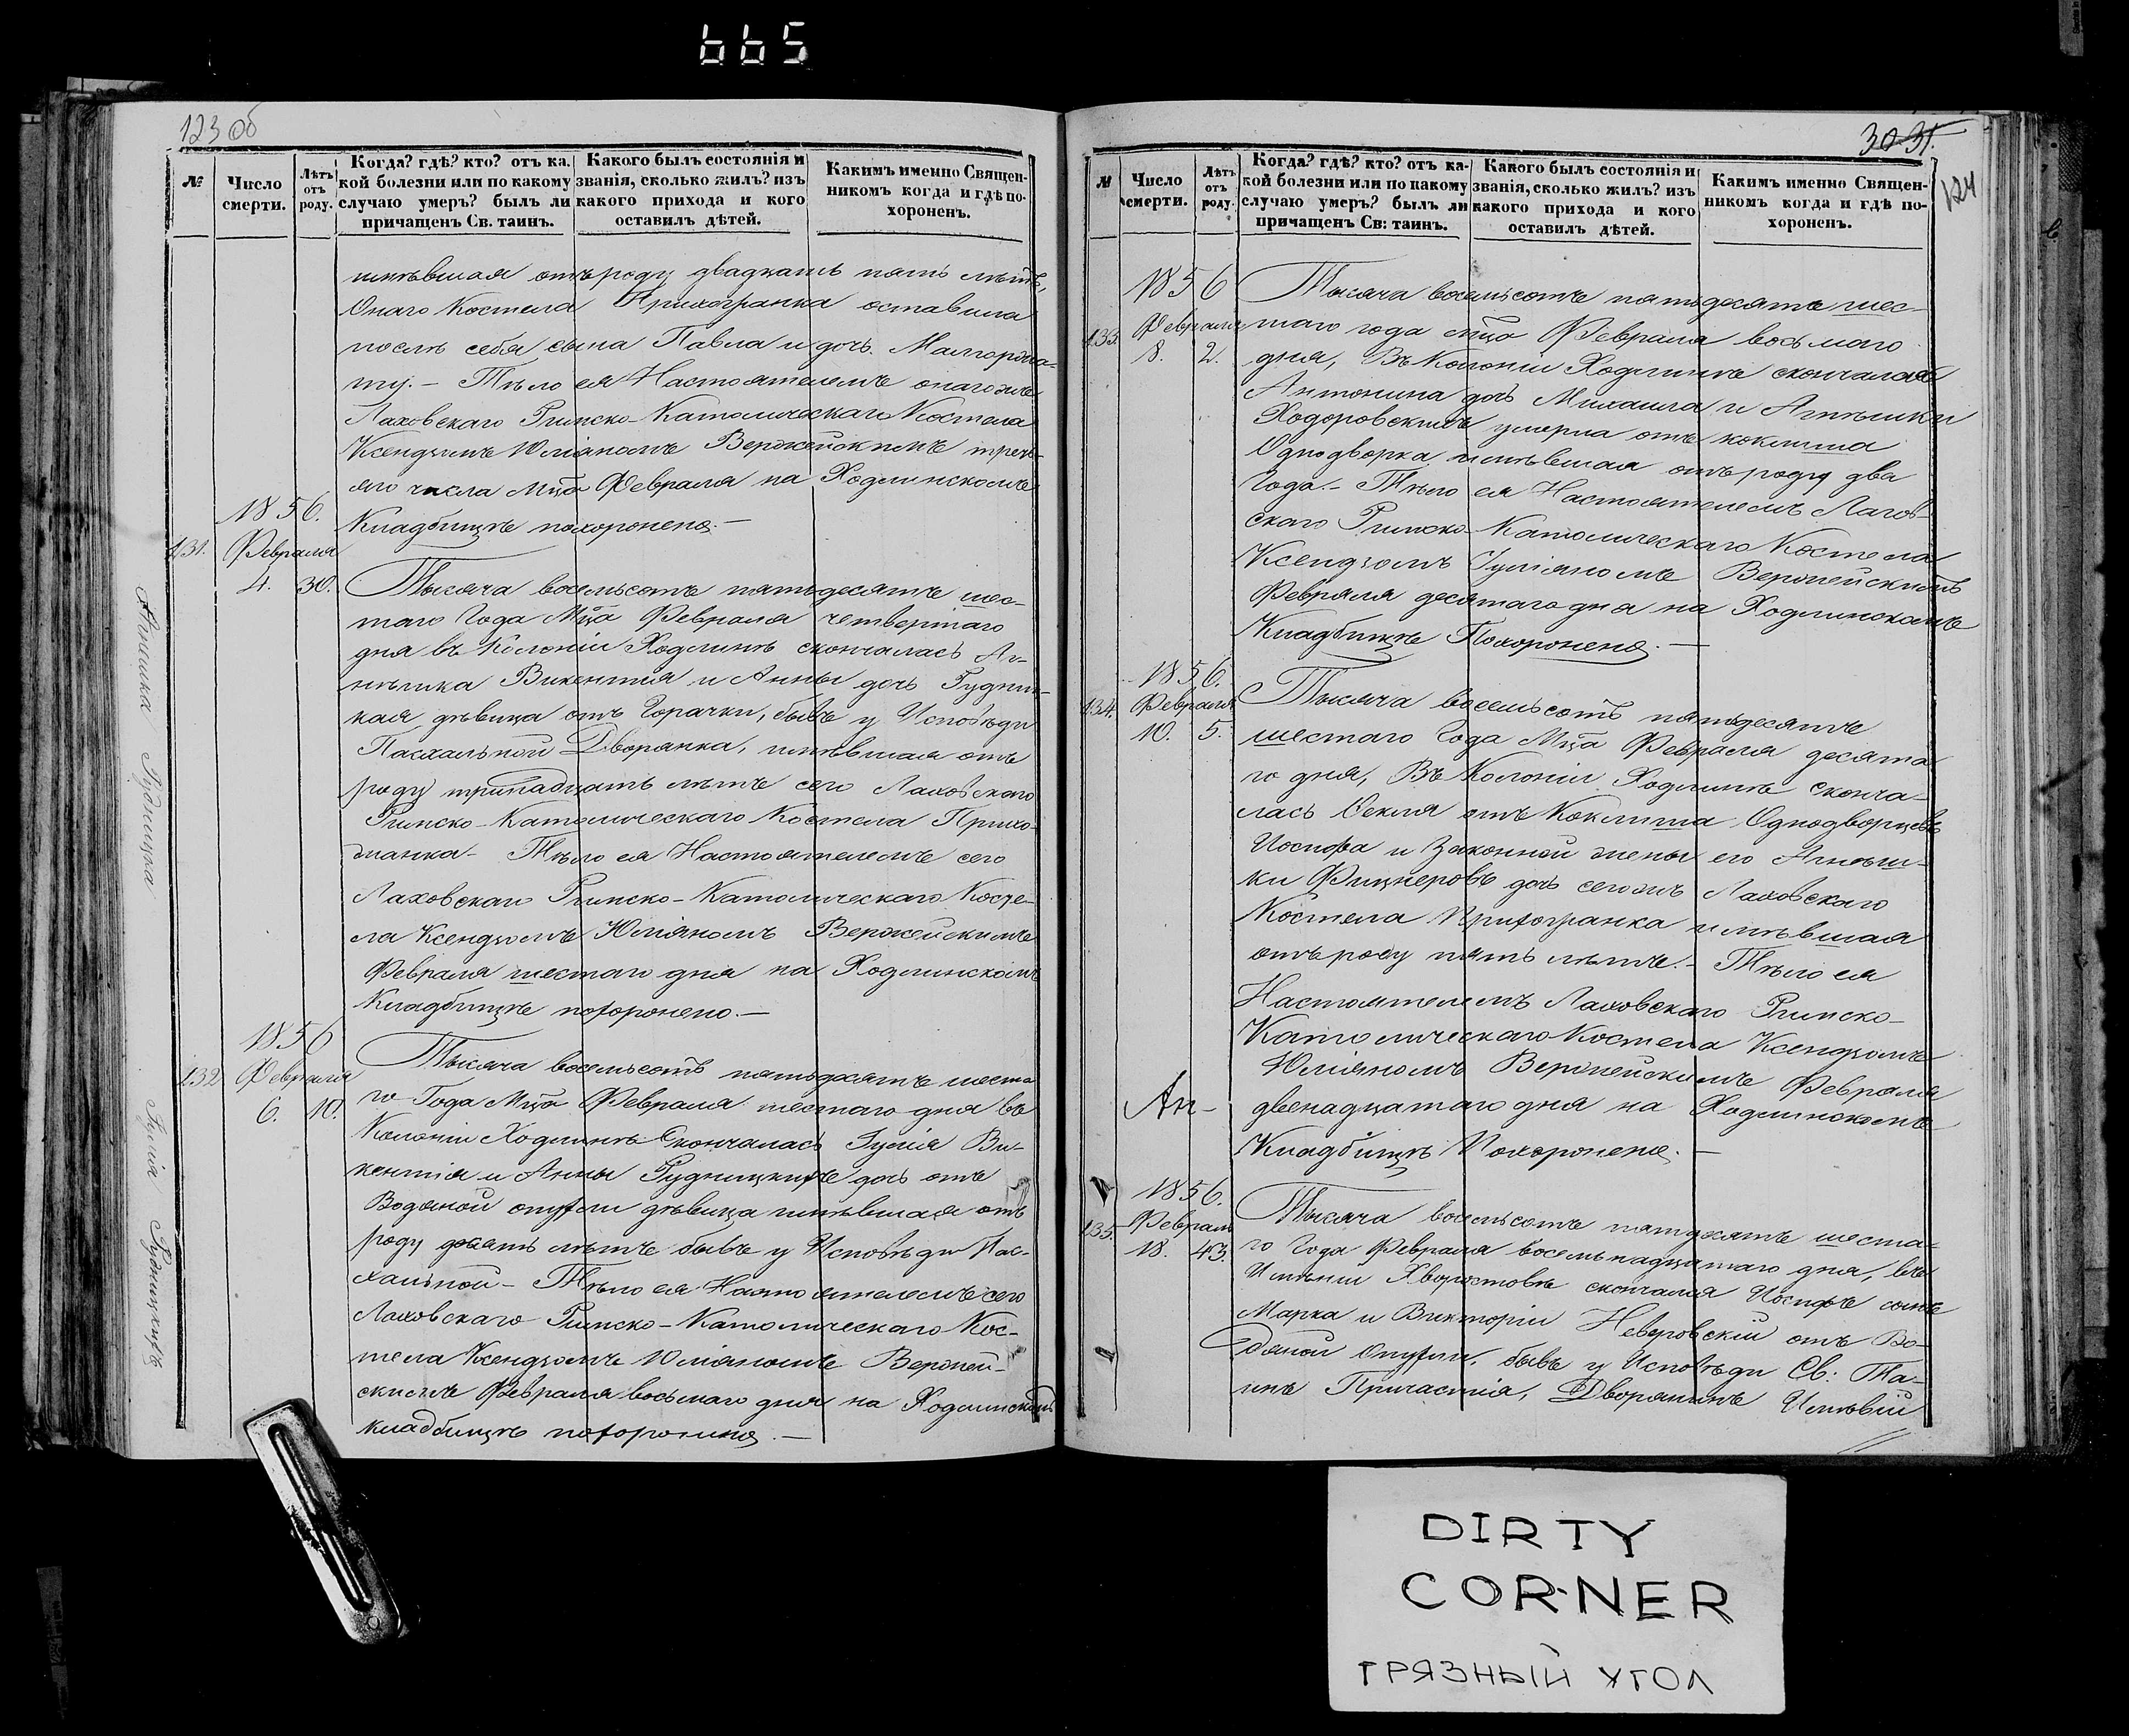 665
123 об
№
Число смерти.
Лѣтъ отъ роду.
Когда? гдѣ? кто? отъ ка-
кой болезни или по какому
случаю умеръ? былъ ли
причащенъ Св. таинъ.
Какого былъ состоянія и
званія, сколько жилъ? изъ
какого прихода и кого
оставилъ дѣтей.
Каким именно Священ-
никомъ когда и гдѣ по-
хороненъ.
имѣвшая отъ роду двадцать пять лѣтъ,
Онаго Костела Прихожанка оставила
послѣ себя сына Павла и дочь
ту. — Тѣло ея Настоятелемъ онаго же
Лаховскаго Римско-Католическаго Костела
Ксендзомъ Юліяномъ Вержейскимъ треть-
яго числа Мца Февраля на Ходлинскомъ
Кладбищѣ похоронено. —
1856.
131. Февраля
4. 30.
Тысяча восемьсотъ пятьдесятъ шес-
таго Года Мца Февраля четвертаго
дня въ Колоніи Ходлинѣ скончалась Аг-
нѣшка Викентія и Анны дочь Рудниц-
кая дѣвица отъ Горачки, бывъ у Исповѣди
Пасхальной Дворянка, имѣвшая отъ
роду лѣтъ сего Лаховскаго
Римско-Католическаго Костела Прихо-
жанка — Тѣло ея Настоятелемъ сего
Лаховскаго Римско-Католическаго Косте-
ла Ксендзомъ Юліяномъ Вержейскимъ
Февраля шестаго дня на Ходлинскомъ
Кладбищѣ похоронено. —
1856
132 Февраля
6. 10.
Тысяча восемьсотъ пятьдесятъ шеста
го Года Мца Февраля шестаго дня въ
Колоніи Ходлинѣ Скончалась Іулія Ви-
кентія и Анны Рудницкихъ дочь отъ
Водяной опухли дѣвица имѣвшая отъ
роду десять лѣтъ бывъ у Исповѣди Пас-
хальной — Тѣло ея Настоятелемъ сего
Лаховскаго Римско-Католическаго Кос-
тела Ксендзомъ Юліяномъ Вержей-
скимъ Февраля восьмаго дня на Ходлинскомъ
кладбищѣ похоронено. —
Іулія Рудницкихъ
30 31.
124
№
Число смерти.
Лѣтъ отъ роду.
Когда? гдѣ? кто? отъ ка-
кой болезни или по какому
случаю умеръ? былъ ли
причащенъ Св: таинъ.
Какого былъ состоянія и
званія, сколько жилъ? изъ
какого прихода и кого
оставилъ дѣтей.
Каким именно Священ-
никомъ когда и гдѣ по-
хороненъ.
1856
133. Февраля
8. 2.
Тысяча восемьсотъ пятьдесятъ шес-
таго года мца Февраля восьмаго
дня, Въ Колоніи Ходлинѣ скончалась
Антонина дочь Михаила и Агнѣшки
Ходоровскихъ умерла отъ коклиша
Однодворка имѣвшая отъ роду два
Года. — Тѣло ея Настоятелемъ Лахов-
скаго Римско-Католическаго Костела
Ксендзомъ Іуліяномъ Вержейскимъ
Февраля десятаго дня на Ходлинскомъ
Кладбищѣ Похоронена. —
1856.
134. Февраля
10. 5.
Тысяча восемьсотъ пятьдесятъ
шестаго Года Мца Февраля десята
го дня, Въ Колоніи Ходлинѣ сконча-
лась Текля отъ Коклиша Однодворцевъ
Іосифа и Законной жены его Агнѣш-
ки Фицнеровъ дочь сего жъ Лаховскаго
Костела Прихожанка имѣвшая
отъ роду пять лѣтъ. — Тѣло ея
Настоятелемъ Лаховскаго Римско-
Католическаго Костела Ксендзомъ
Юліяномъ Вержейскимъ Февраля
двенадцатаго дня на Ходлинскомъ
Кладбищѣ Похоронена. —
1856.
135. Февраля
18. 43.
Тысяча восемьсотъ пятдесятъ шеста-
го Года Февраля восемьнадцатаго дня, въ
Имѣніи Хворостовѣ скончался Іосифъ сынъ
Марка и Викторіи Неверовскій отъ Во-
дяной Опухли, бывъ у Исповѣди Св: Та-
инъ Причастія, Дворянинъ Имѣвый
DIRTY
CORNER
ГРЯЗНЫЙ УГОЛ